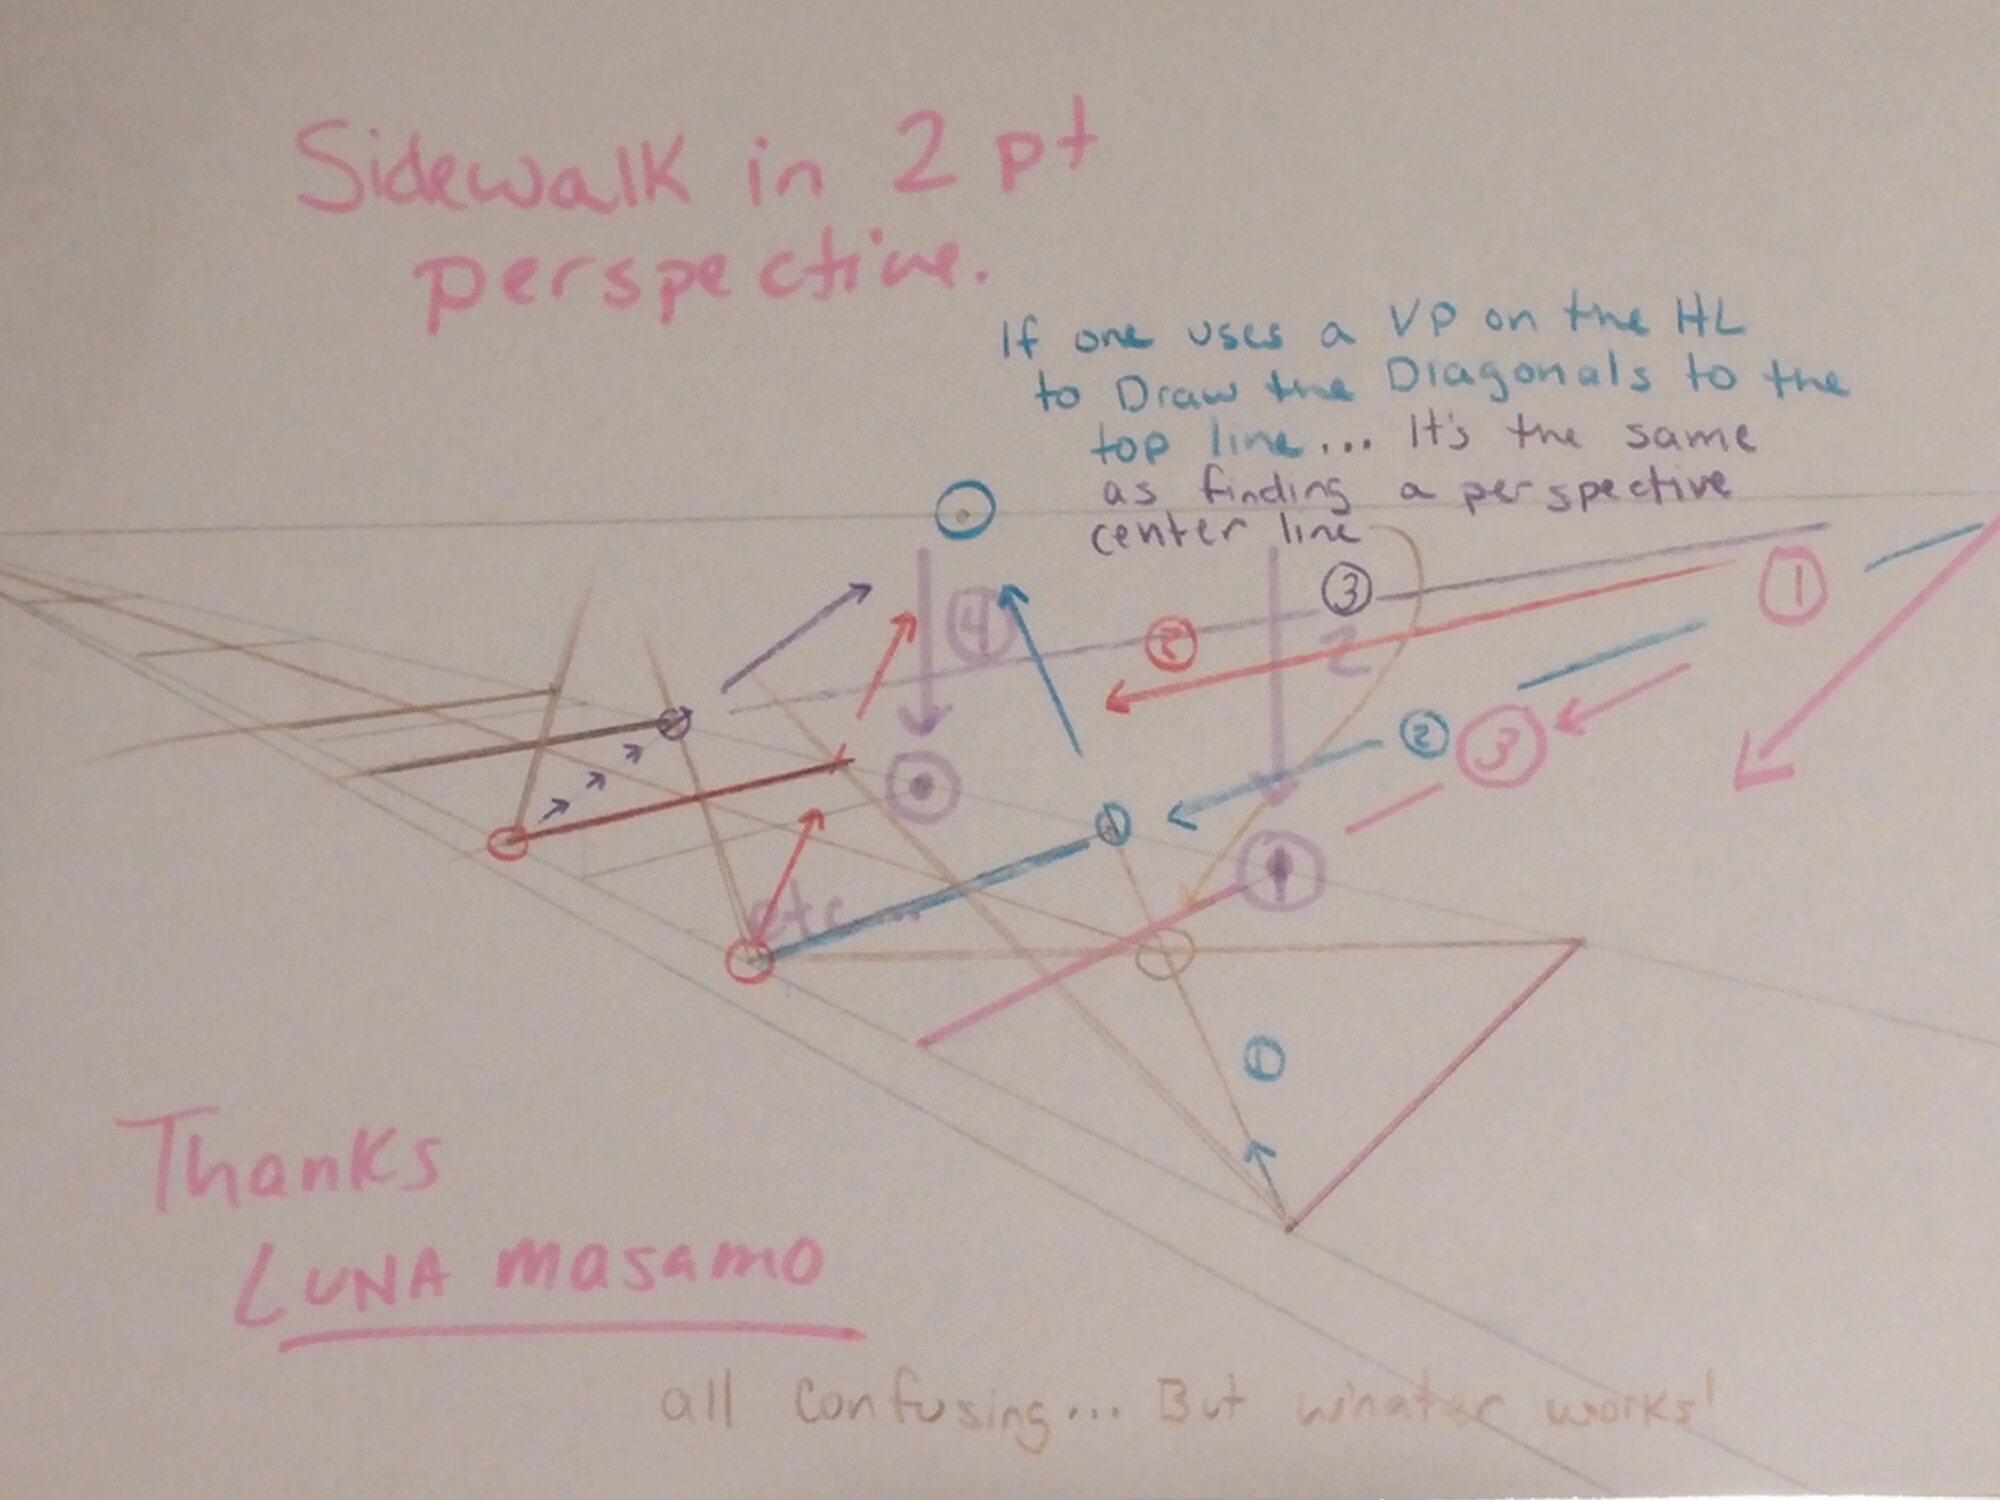 Sidewalk in 2 pt
perspective.
If one uses a VP on the HL
to Draw the Diagonals to the
top line... It's the same
as finding a perspective
center line
3
4
2
1
2
2
3
1
etc...
1
Thanks
LUNA masamo
all confusing... But whater works!